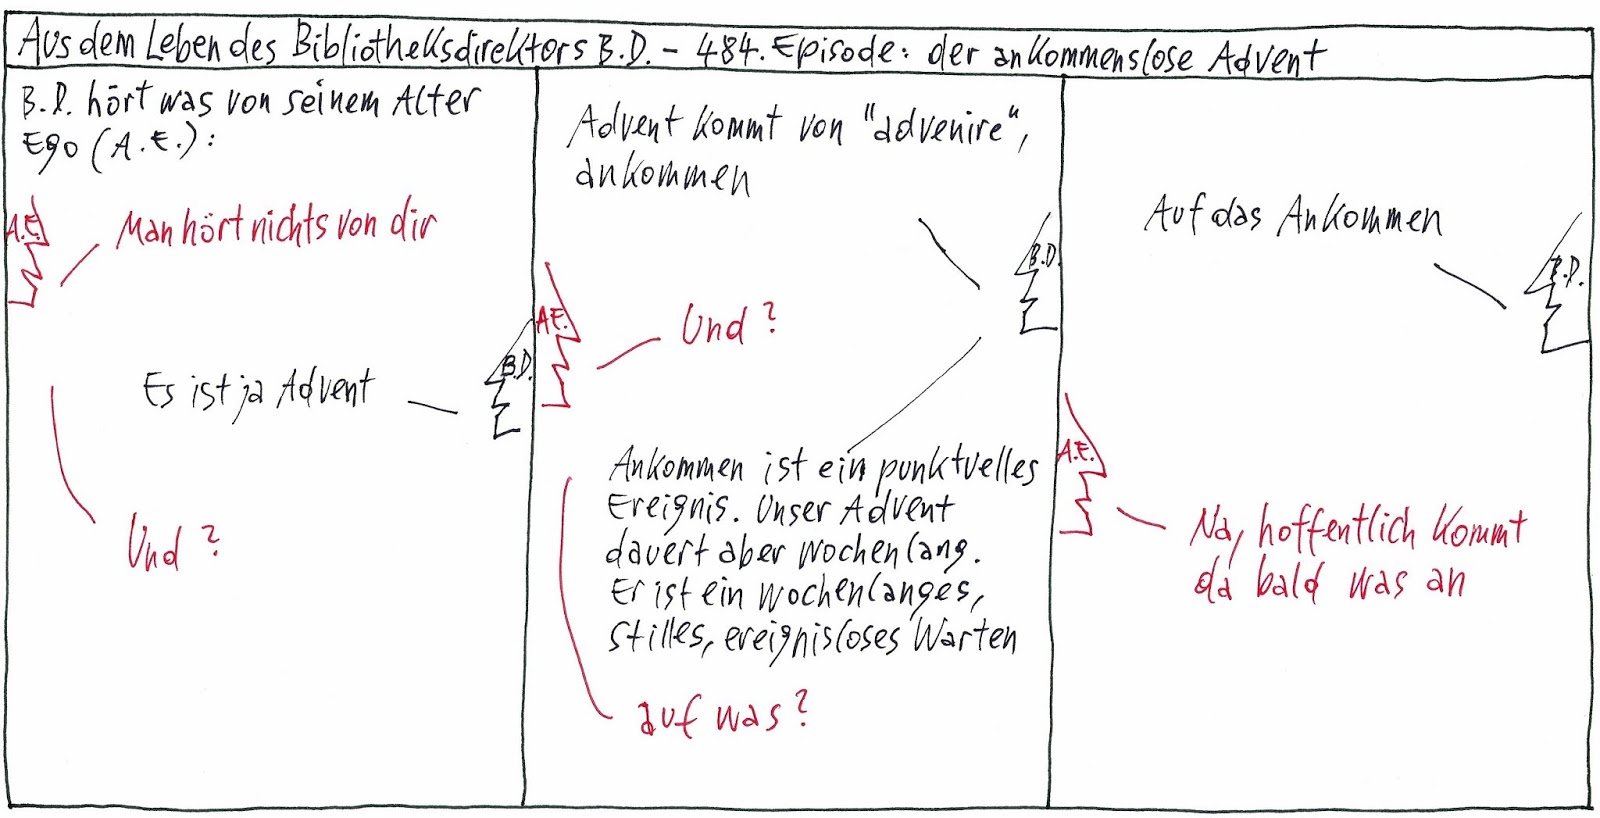 Aus dem Leben des Bibliotheksdirektors B.D. – 484. Episode: der ankommenslose Advent
B.D. hört was von seinem Alter
Ego (A.E.):
A.E.
Man hört nichts von dir
Es ist ja Advent
B.D.
Und?
Advent kommt von "advenire",
ankommen
B.D.
A.E.
Und?
Ankommen ist ein punktuelles
Ereignis. Unser Advent
dauert aber wochenlang.
Er ist ein wochenlanges,
stilles, ereignisloses Warten
auf was?
Auf das Ankommen
B.D.
A.E.
Na, hoffentlich kommt
da bald was an